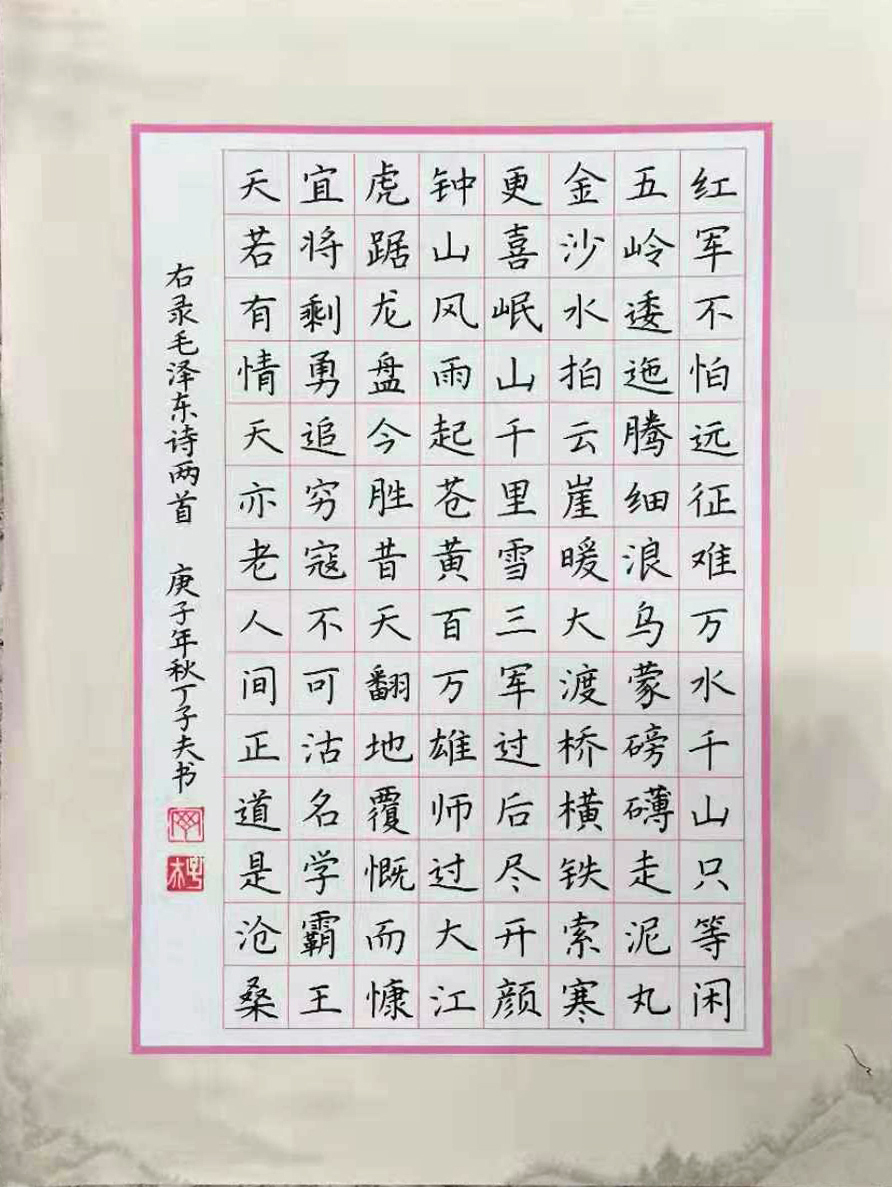 红军不怕远征难万水千山只等闲
五岭逶迤腾细浪乌蒙磅礴走泥丸
金沙水拍云崖暖大渡桥横铁索寒
更喜岷山千里雪三军过后尽开颜
钟山风雨起苍黄百万雄师过大江
虎踞龙盘今胜昔天翻地覆慨而慷
宜将剩勇追穷寇不可沽名学霸王
天若有情天亦老人间正道是沧桑
右录毛泽东诗两首 庚子年秋丁子夫书